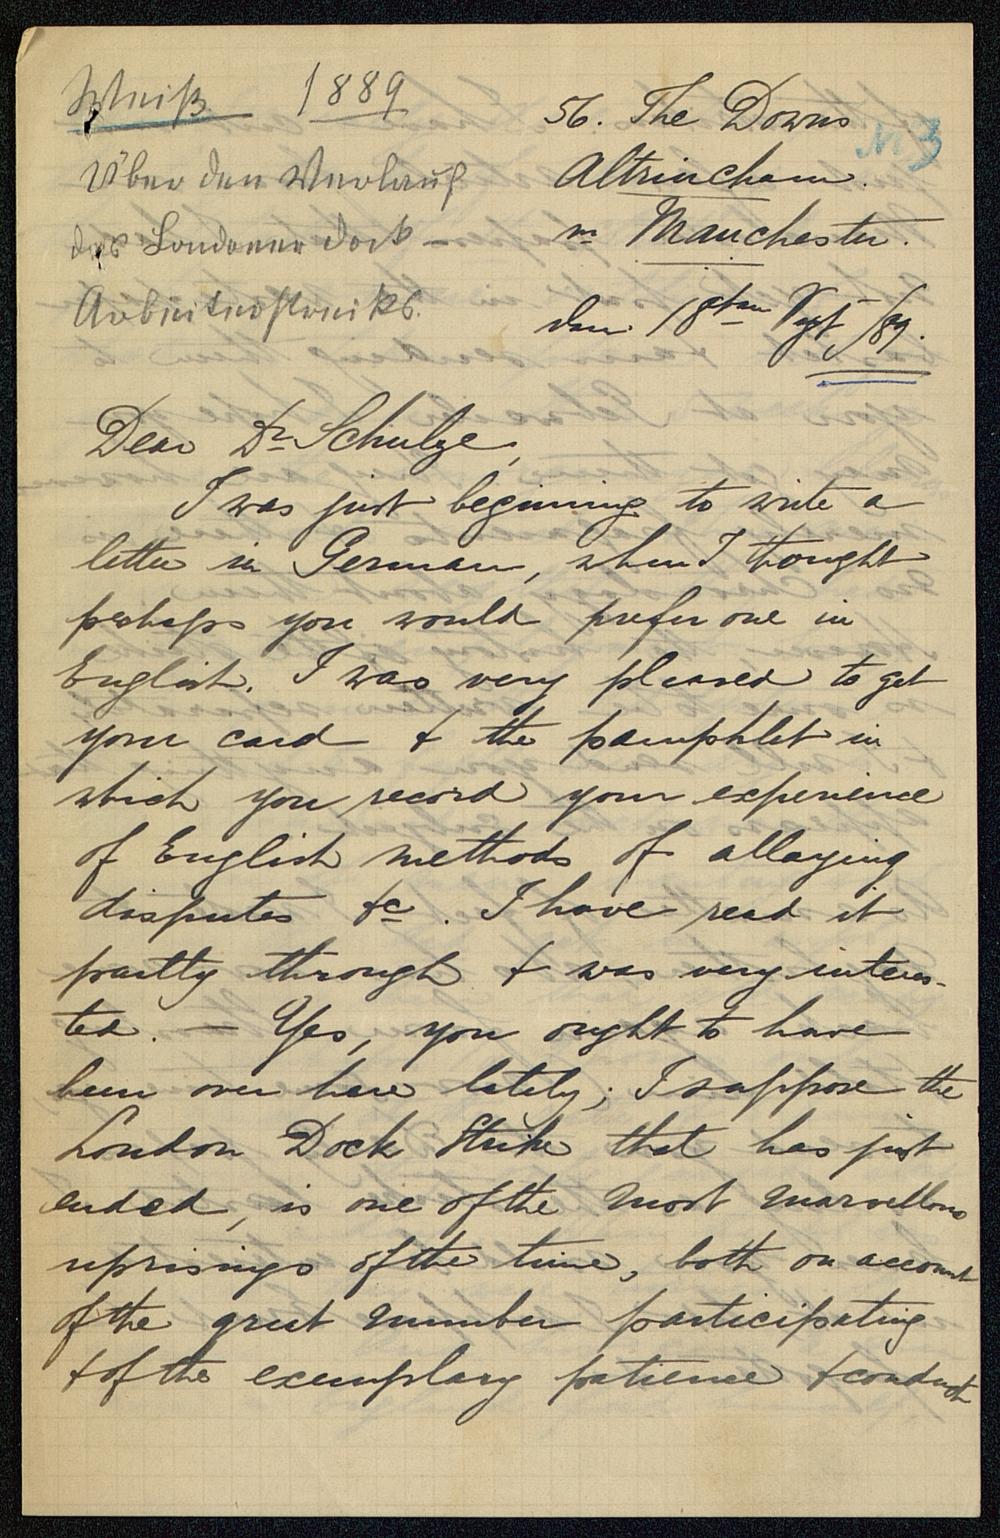 Weiß 1889
Über den Verlauf
des Londoner Dock-
Arbeiterstreiks.
56. The Downs
No 3
Altrincham.
nr Manchester.
den 18ten Sept /89.
Dear Dr Schulze,
I was just beginning to write a
letter in German, when I thought
perhaps you would prefer one in
English. I was very pleased to get
your card & the pamphlet in
which you record your experience
of English methods of allaying
disputes &c. I have read it
partly through & was very interes-
ted. — Yes, you ought to have
been over here lately; I suppose the
London Dock Strike that has just
ended, is one of the most marvellous
uprisings of the time, both on account
of the great number participating
& of the exemplary patience & conduct